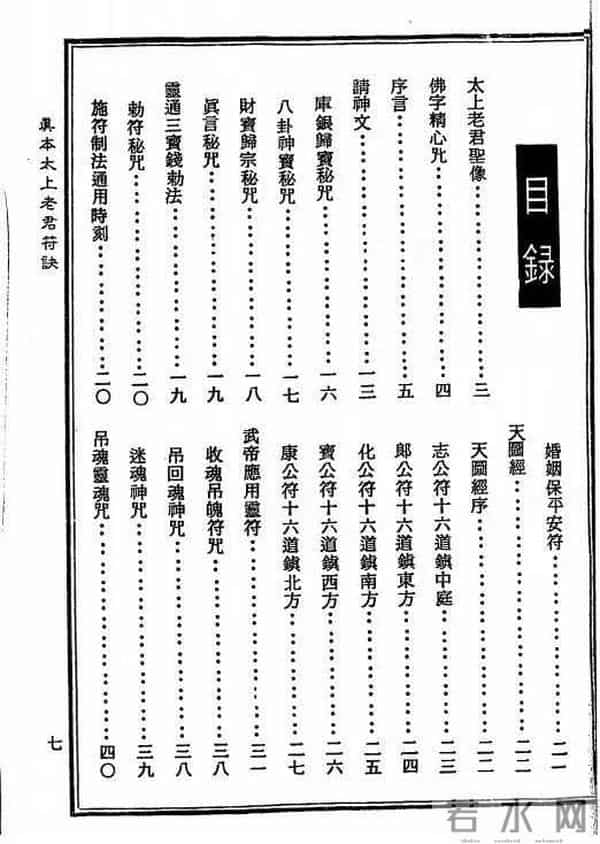 目錄
太上老君聖像……三
佛字精心卍……四
序言……五
請神文……一三
庫銀歸寶秘咒……一六
八卦神寶秘咒……一七
財寶歸宗秘咒……一八
眞言秘咒……一九
靈通三寶錢勅法……一九
勅符秘咒……二〇
施符制法通用時刻……二〇
婚姻保平安符……二一
天圖經……二二
天圖經序……二二
志公符十六道鎮中庭……二三
郞公符十六道鎮東方……二四
化公符十六道鎮南方……二五
寶公符十六道鎮西方……二六
康公符十六道鎮北方……二七
武帝應用靈符……三一
收魂吊魄符咒……三八
吊回魂神咒……三八
迷魂神咒……三九
吊魂靈魂咒……四〇
眞本太上老君符訣
七
若水网